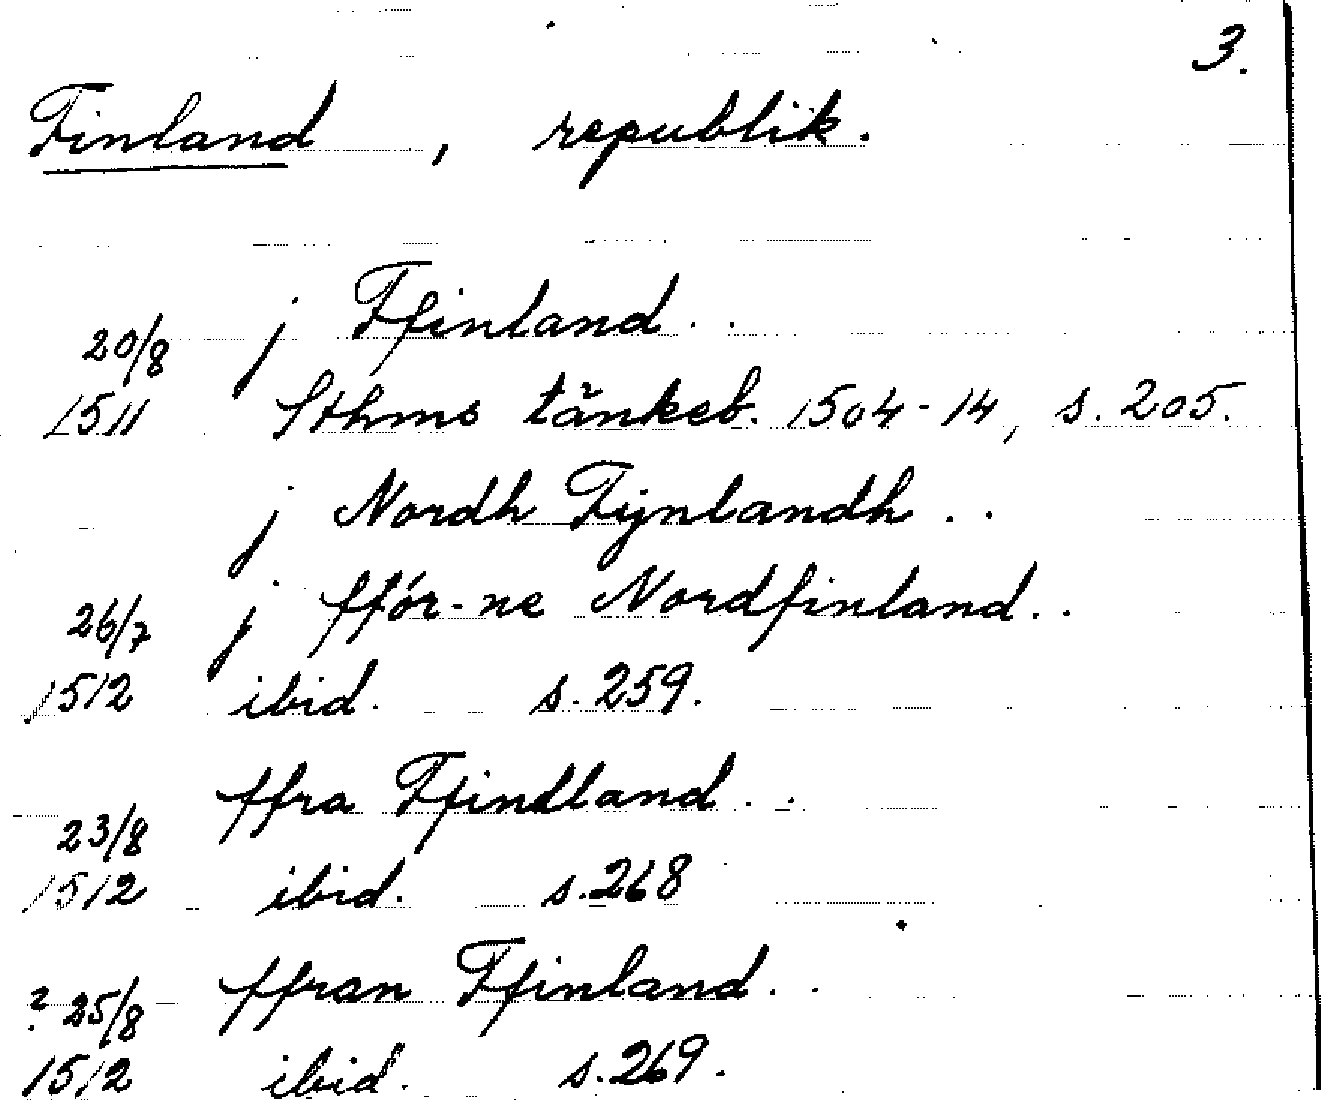 3.
Finland, republik.
j Ffinland..
20/8
1511 Sthms tänkeb. 1504-14, s. 205.
j Nordh Fijnlandh..
26/7 j fför-ne Nordfinland..
1512 ibid. s. 259.
ffra Ffindland..
23/8
1512 ibid. s. 268
ffran Ffinland..
? 25/8
1512 ibid. s. 269.